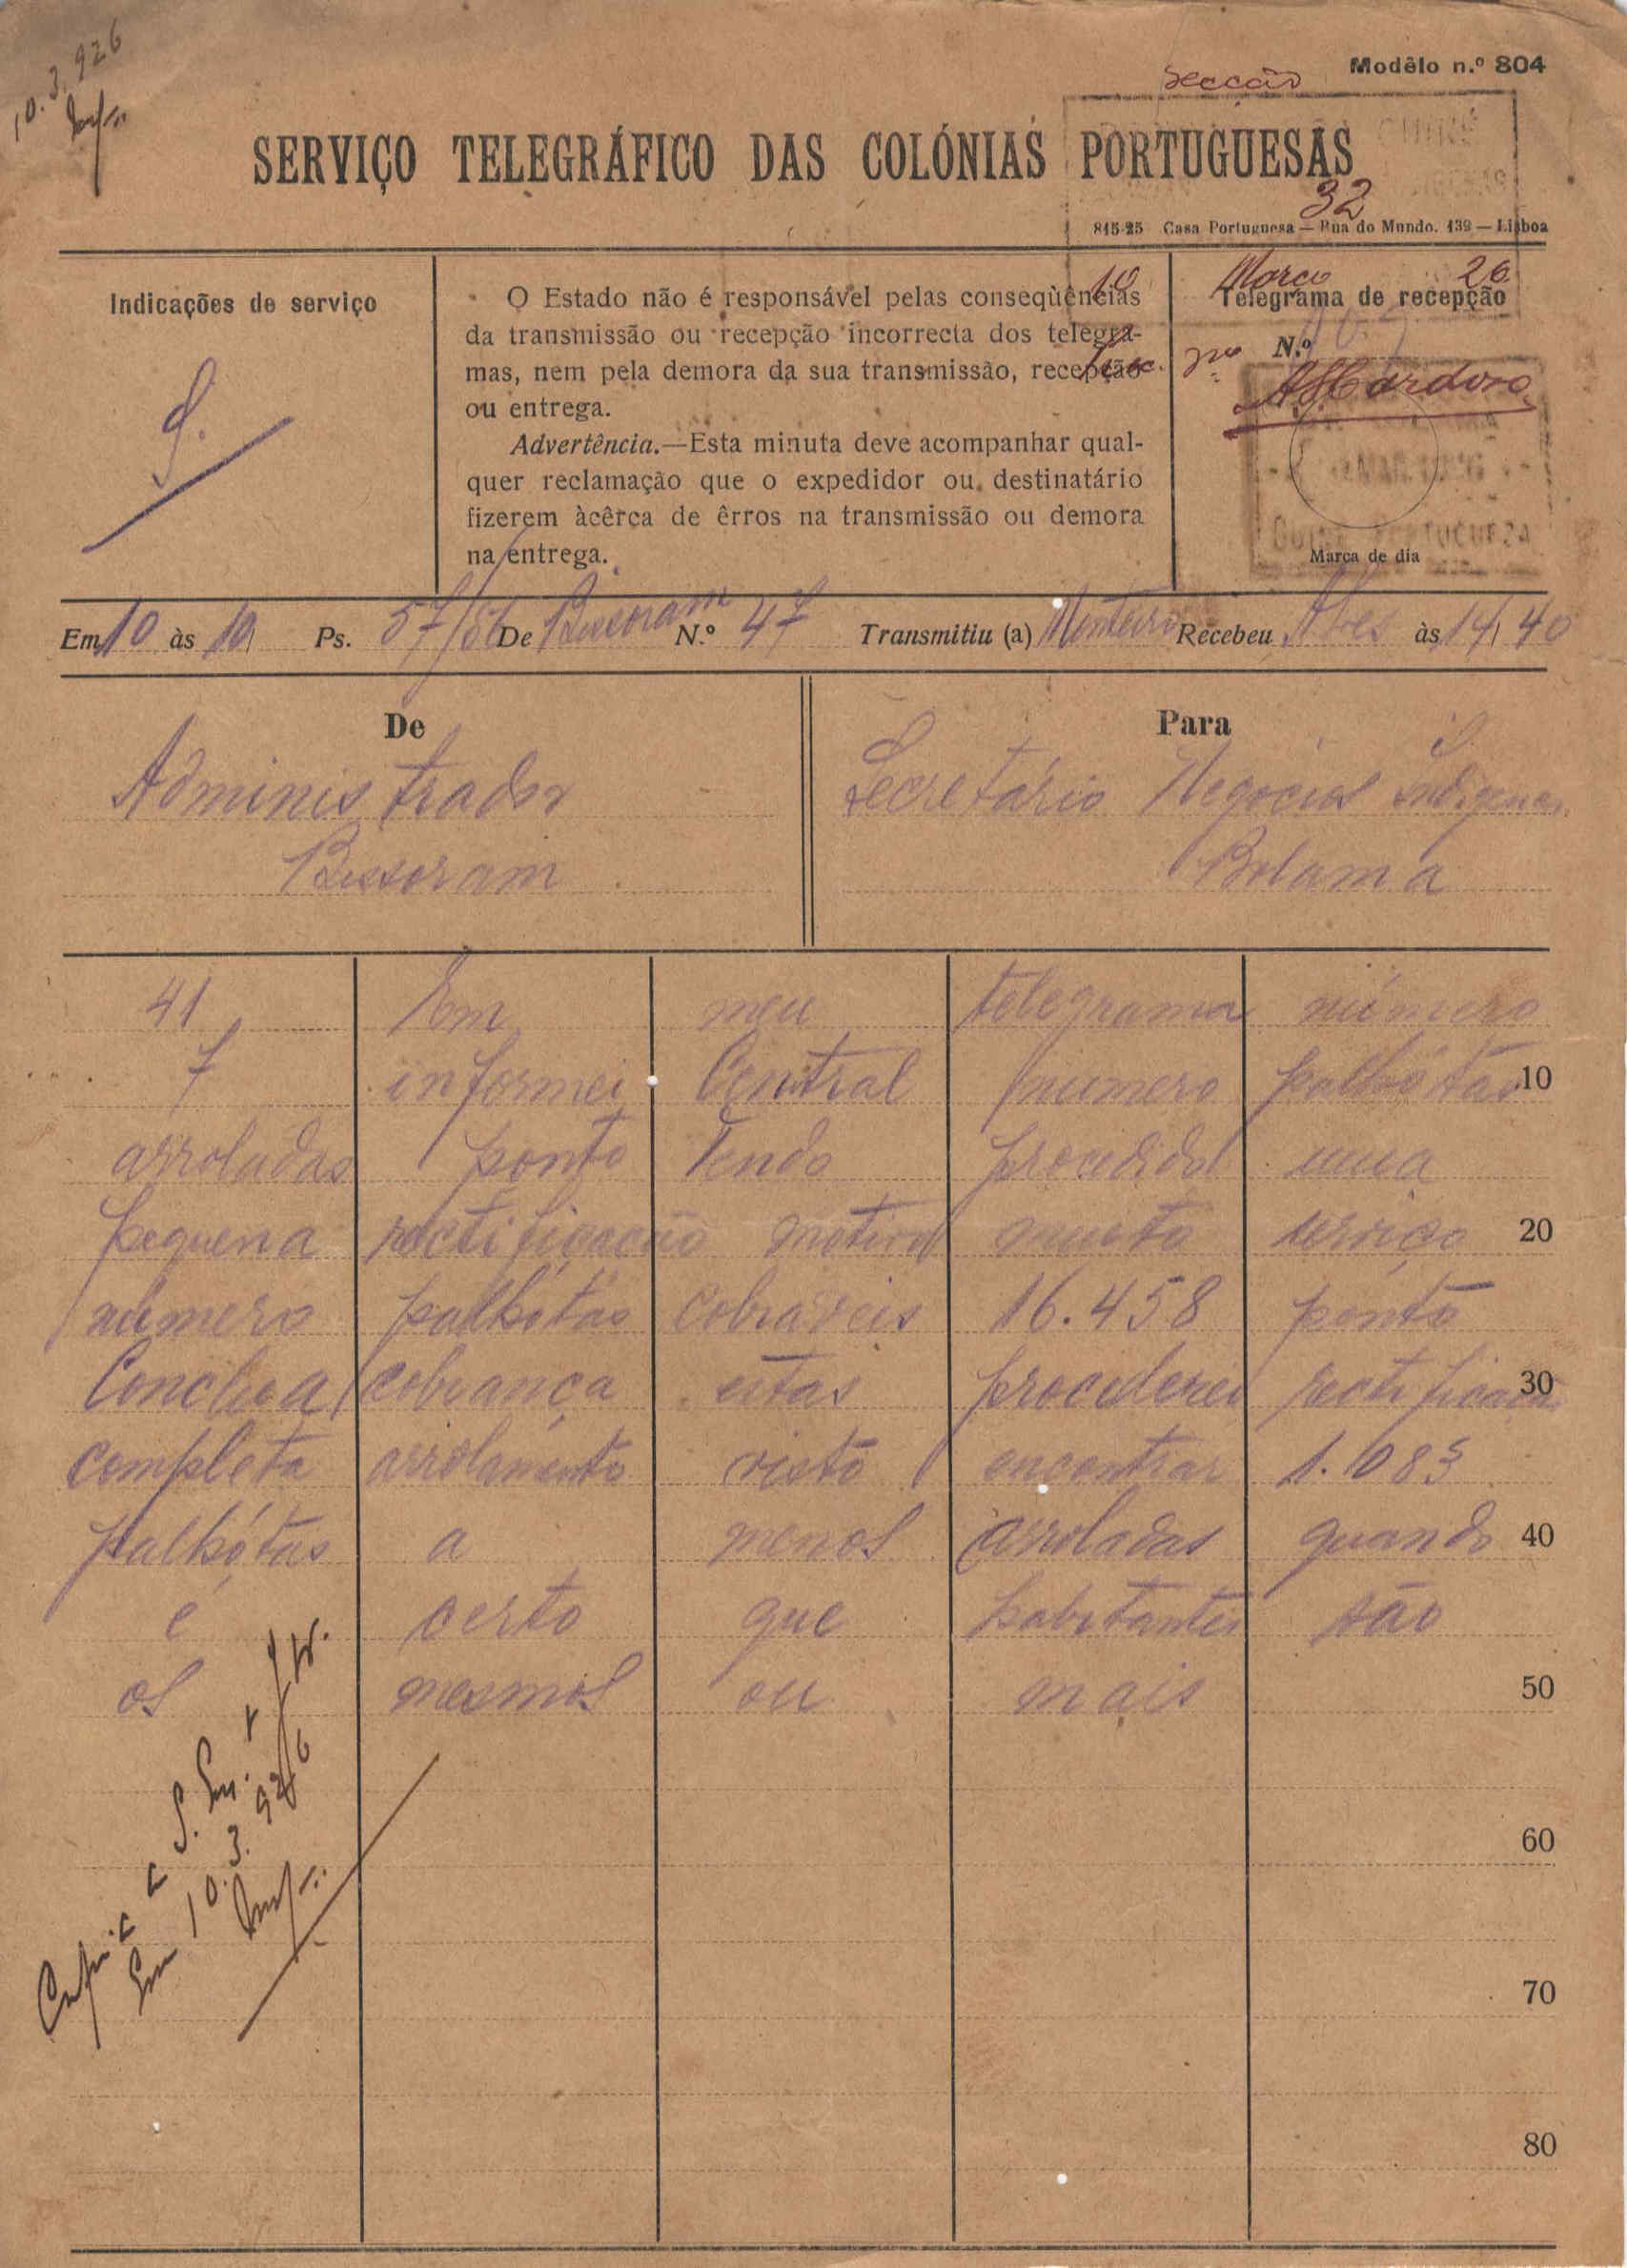 10.3.926
Modêlo n.º 804
Secção
SERVIÇO TELEGRÁFICO DAS COLÓNIAS PORTUGUESAS
32
815-25 Casa Portuguesa — Rua do Mundo. 139 — Lisboa
Indicações de serviço
S.
O Estado não é responsável pelas conseqùências
da transmissão ou recepção incorrecta dos telegra-
mas, nem pela demora da sua transmissão, recepção
ou entrega.
Advertência.—Esta minuta deve acompanhar qual-
quer reclamação que o expedidor ou destinatário
fizerem àcêrca de êrros na transmissão ou demora
na entrega.
10 Março 26
Telegrama de recepção
N.º
Cardoso
Marca de dia
Em 10 às 10 Ps. 57/56 De Bissoram N.º 47 Transmitiu (a) Monteiro Recebeu Alves às 14,40
De
Administrador
Bissoram
Para
Secretário Negócios Indigenas
Bolama
41 Em meu telegrama número
7 informei Central numero palhótas 10
arroladas ponto Tendo procedido uma
pequena rectificação motivo muito serviço 20
número palhótas cobraveis 16.458 ponto
Conclua cobrança estas procederei rectificação 30
completa arrolamento visto encontrar 1.083
palhótas a menos arroladas quando 40
é certo que habitantes são
os mesmos ou mais 50
60
70
80
Em 10.3.926